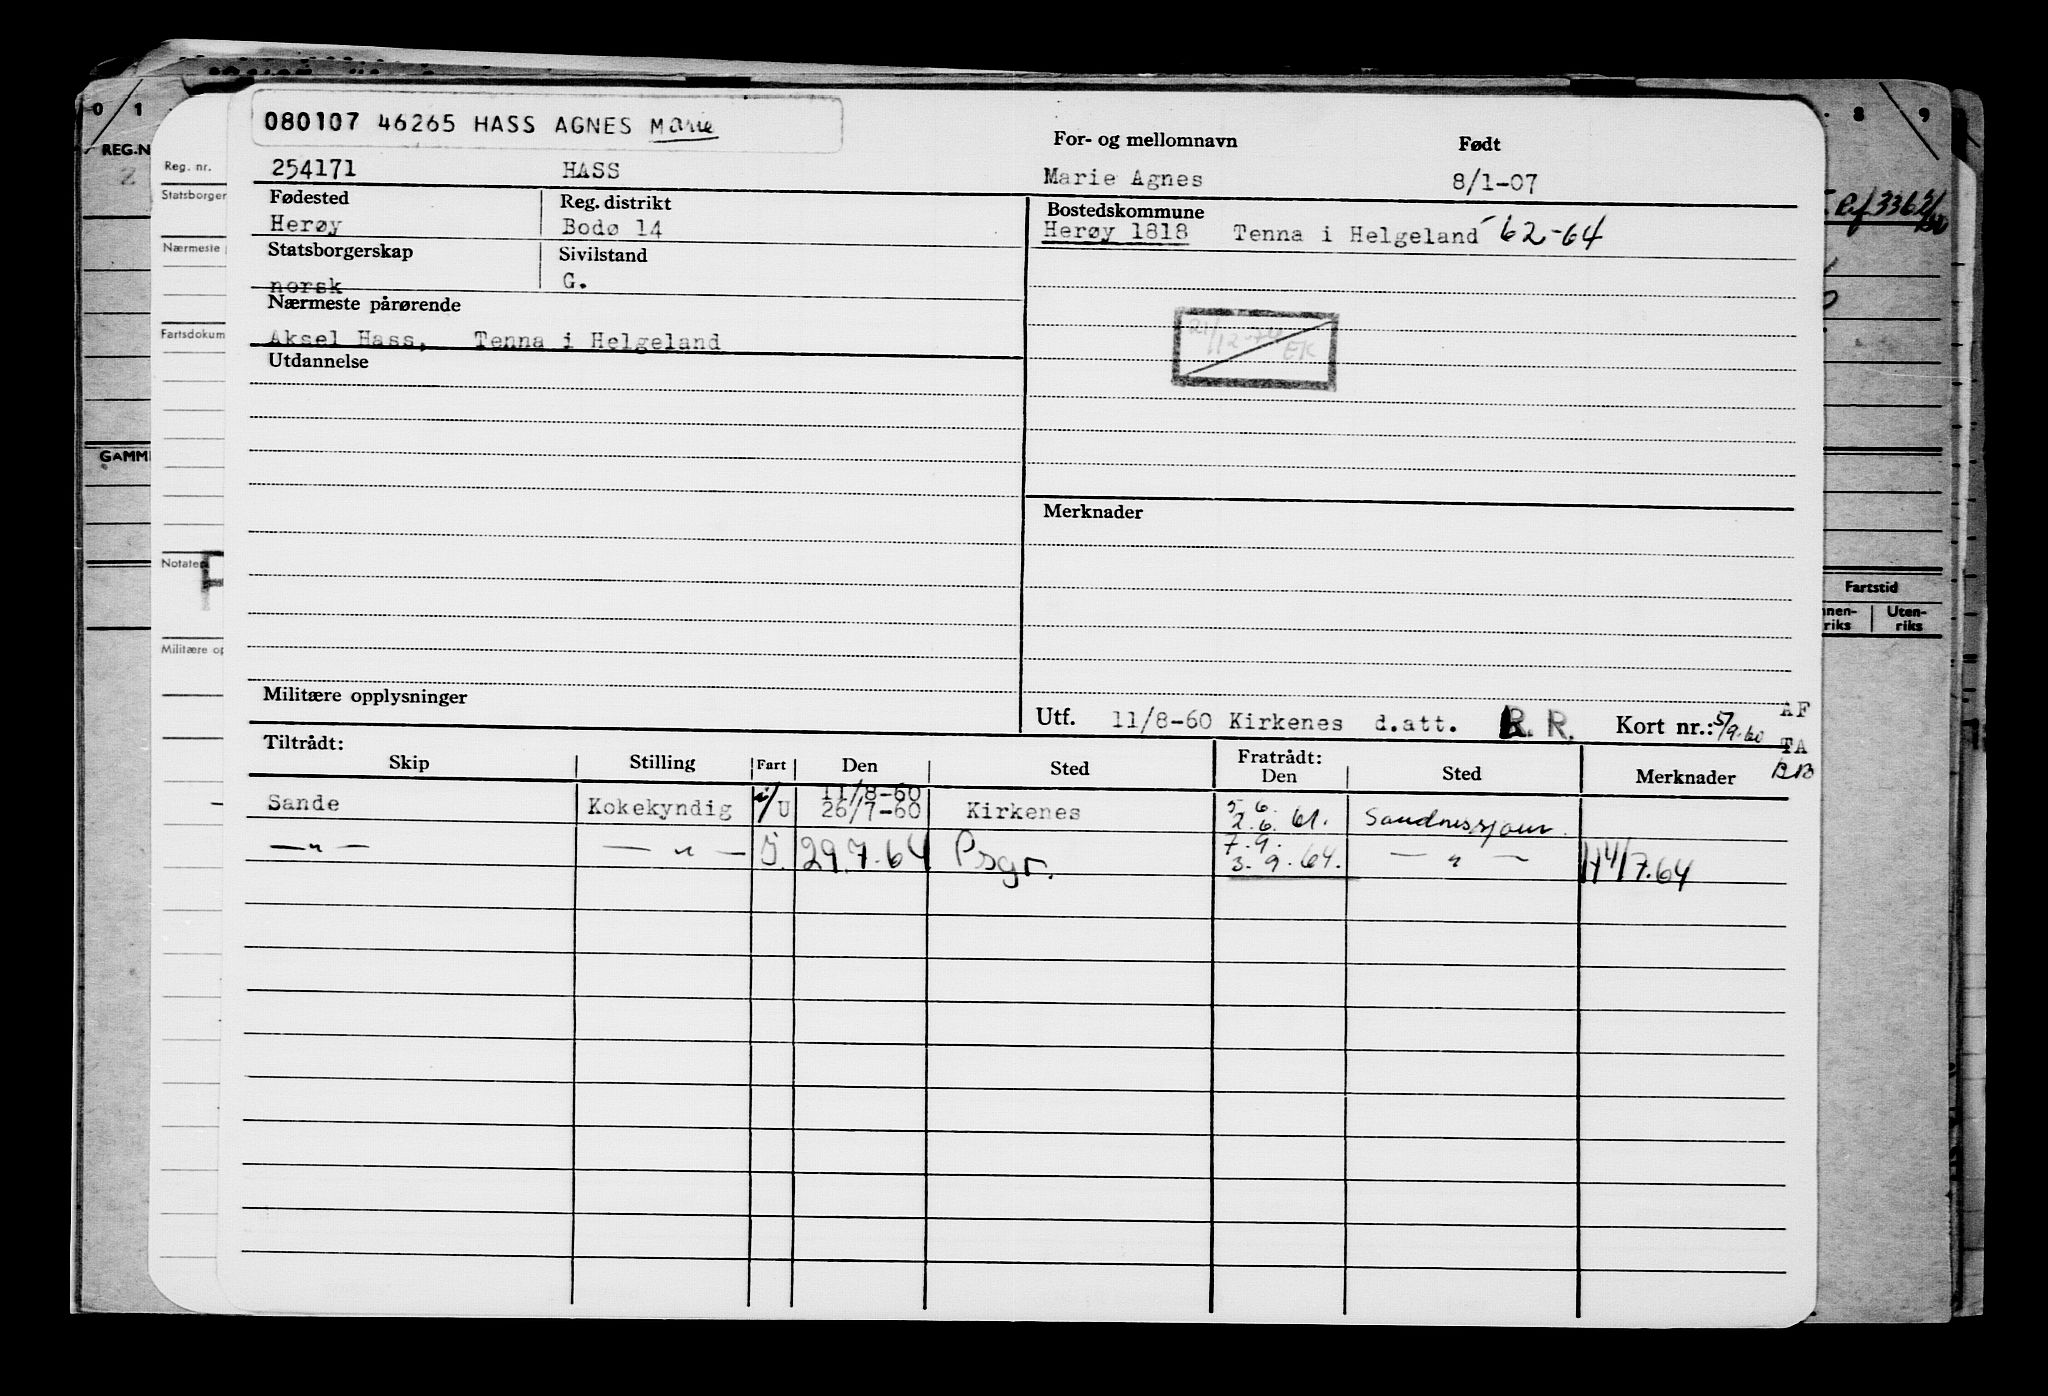 080107 46265 HASS AGNES Marie
For- og mellomnavn Født
254171 HASS Marie Agnes 8/1-07
Fødested Reg. distrikt Bostedskommune
Herøy Bodø 14 Herøy 1818 Tenna i Helgeland -62-64
Statsborgerskap Sivilstand
norsk G.
Nærmeste pårørende
Aksel Hass, Tenna i Helgeland
21/12-74 EK
Utdannelse
Merknader
Militære opplysninger
Utf. 11/8-60 Kirkenes d.att. R. R. Kort nr.: 5/9.60
AF
TA
BB
Tiltrådt: Fratrådt:
Skip Stilling Fart Den Sted Den Sted Merknader
11/8-60 5.6.
Sande Kokekyndig i/U 26/7-60 Kirkenes 2.6.61. Sandnessjøen.
7.9.
—"— —"— I. 29.7.64 Psgr. 3.9.64. —"— H4/7.64
0 1
REG.N
Reg. nr.
Statsborger
Nærmeste
Fartsdokum
GAMM
Notater
Militære op
8 9
Fartstid
nnen-
riks
Uten-
riks